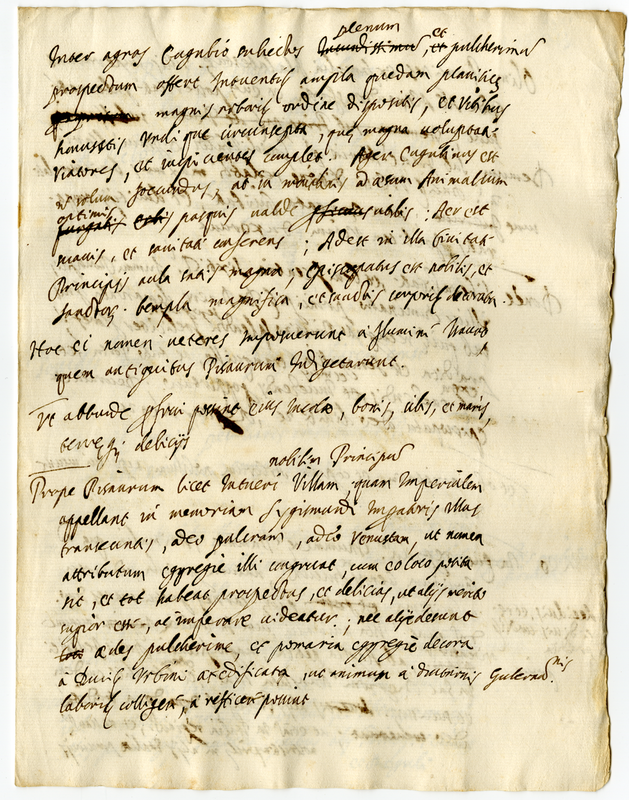 plenum
Inter agros Eugubio subiectos Iucundissimus, et pulcherimus
prospectum offert Intuentis ampla quedam planities
magnis arboribus ordine dispositis, et vitibus
honustis undique circumsepta, que magna voluptate
viatores, et inspicientes complet. Ager Eugubinus est
non solum Jocundus, at in montibus ad esum Animalium
optimis
pascuis valde utilis; Aer est
suavis, et sanitati conferens; Adest in illa Civitate
Principis aula satis magna; Episcopatus est nobilis, et
sanctorum templa magnifica, et sanctis corporibus decorata.
Hoc ei nomen veteres imposuerunt a flumine
quem antiquitus Pisaurum Indigetarunt.
Ut abbunde perfrui possint eius Incolae, boris, silis, et maris,
terreque delicijs
nobilium Principum
Prope Pisaurum licet Intueri Villam, quam Imperialem
appellant in memoriam Sygismundi Imperatoris illac
transeuntis, adeo pulcram, adeo venustam, ut nomen
attributum egregie illi congruat, cum eo loco posita
sit, et tot habeat prospectus, et delicias, ut alijs merito
superior esse, ac imperare videatur; nec alij desunt
aedes pulcherime, et pomaria egregie decora
a Ducibus Urbini aedificata, ut animum a diuturnis Gubernationis
laboribus colligere, a reficere possint